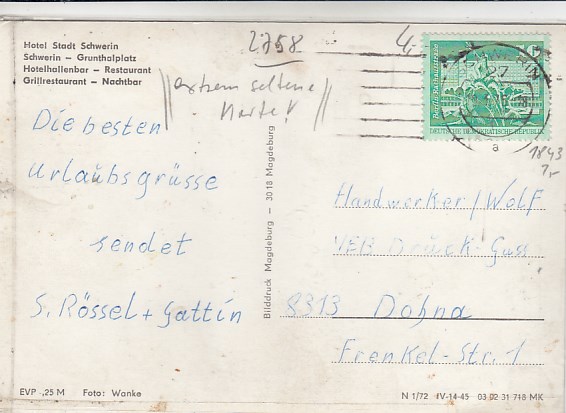 Hotel Stadt Schwerin
Schwerin – Grunthalplatz
Hotelhallenbar – Restaurant
Grillrestaurant – Nachtbar
2758
4,-
extrem seltene
Karte!
Die besten
Urlaubsgrüsse
sendet
S. Rössel + Gattin
Bilddruck Magdeburg – 3018 Magdeburg
DEUTSCHE DEMOKRATISCHE REPUBLIK
a
1843
1,-
Handwerker/Wolf
VEB Druck-Guss
8313 Dohna
Frenkel-Str. 1
EVP -,25 M Foto: Wanke
N 1/72 IV-14-45 03 02 31 718 MK